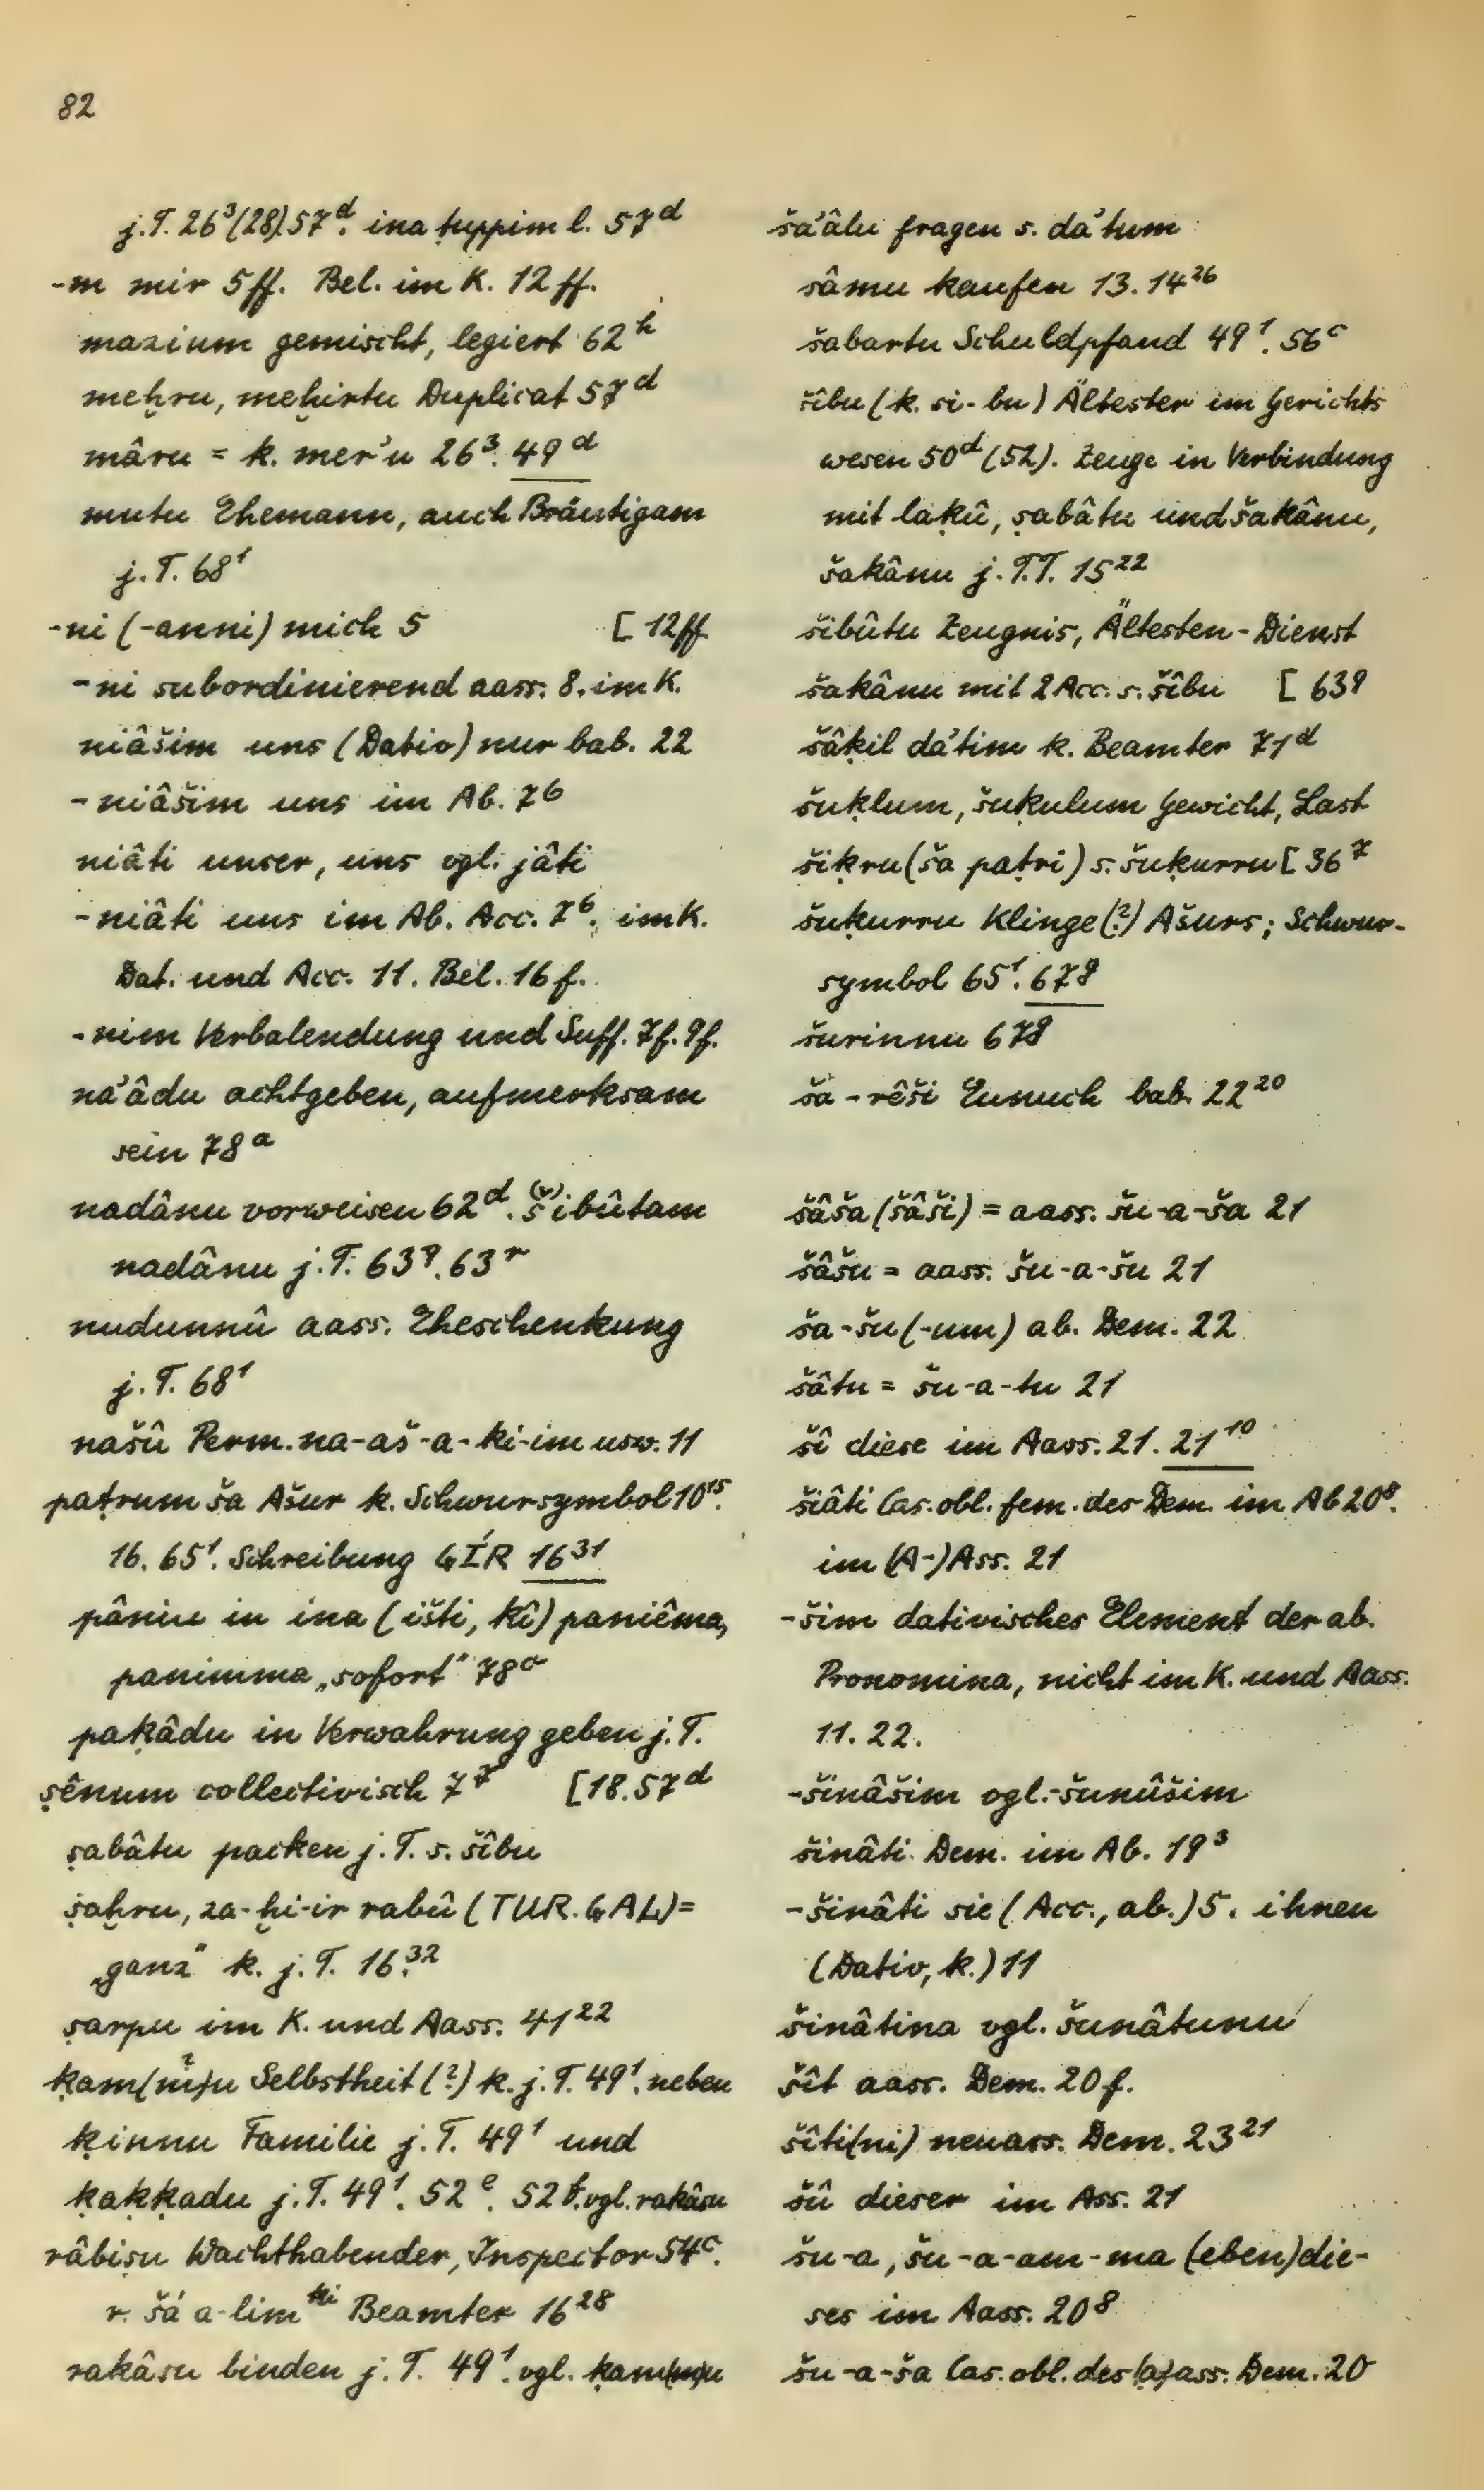 82
j.T. 26³(28).57ᵈ. ina ṭuppim l. 57ᵈ
-m mir 5ff. Bel. im K. 12ff.
mazium gemischt, legiert 62ʰ
meḫru, meḫirtu Duplicat 57ᵈ
mâru = k. mer'u 26³. 49ᵈ
mutu Ehemann, auch Bräutigam
j.T. 68¹
-ni (-anni) mich 5 [12ff.
-ni subordinierend aass. 8. im K.
niâšim uns (Dativ) nur bab. 22
-niâšim uns im Ab. 7⁶
niâti unser, uns vgl. jâti
-niâti uns im Ab. Acc. 7⁶, im K.
Dat. und Acc. 11. Bel. 16f.
-nim Verbalendung und Suff. 7f. 9f.
na'âdu achtgeben, aufmerksam
sein 78ᵃ
nadânu vorweisen 62ᵈ. š⁽ᵛ⁾ibûtam
nadânu j.T. 63ᑫ. 63ʳ
nudunnû aass. Eheschenkung
j.T. 68¹
našû Perm. na-aš-a-ki-im usw. 11
paṭrum ša Ašur k. Schwursymbol 10¹⁵.
16. 65¹. Schreibung GÍR 16³¹
pâniu in ina (išti, kî) paniêma,
panimma „sofort" 78ᵃ
paḳâdu in Verwahrung geben j.T.
ṣênum collectivisch 7⁷ [18.57ᵈ
ṣabâtu packen j.T. s. šîbu
ṣaḫru, za-ḫi-ir rabû (TUR.GAL) =
„ganz" k. j.T. 16³².
ṣarpu im K. und Aass. 41²²
ḳam(m)u Selbstheit (?) k. j.T. 49¹. neben
ḳinnu Familie j.T. 49¹ und
ḳaḳḳadu j.T. 49¹. 52ᵉ. 52ᶠ. vgl. rakâsu
râbiṣu Wachthabender, Inspector 54ᶜ.
r. šá a-limᵏⁱ Beamter 16²⁸
rakâsu binden j.T. 49¹. vgl. ḳam(m)u
ša'âlu fragen s. da'tum
šâmu kaufen 13. 14²⁶
šabartu Schuldpfand 49¹. 56ᶜ
šîbu (k. si-bu) Ältester im Gerichts
wesen 50ᵈ (52). Zeuge in Verbindung
mit laḳû, ṣabâtu und šakânu,
šakânu j.T.T. 15²²
šibûtu Zeugnis, Ältesten-Dienst
šakânu mit 2 Acc. s. šîbu [63ᑫ
šâḳil da'tim k. Beamter 71ᵈ
šuḳlum, šuḳulum Gewicht, Last
šiḳru (ša paṭri) s. šuḳurru [36⁷
šuḳurru Klinge (?) Ašurs; Schwur-
symbol 65¹. 67ᵍ
šurinnu 67ᵍ
ša-rêši Eunuch bab. 22²⁰
šâša (šâši) = aass. šu-a-ša 21
šâšu = aass. šu-a-šu 21
ša-šu (-um) ab. Dem. 22
šâtu = šu-a-tu 21
šî diese im Aass. 21. 21¹⁰
šiâti Cas. obl. fem. des Dem. im Ab 20⁸.
im (A-)Ass. 21
-šim dativisches Element der ab.
Pronomina, nicht im K. und Aass.
11. 22.
-šinâšim vgl. -šunûšim
šinâti Dem. im Ab. 19³
-šinâti sie (Acc., ab.) 5. ihnen
(Dativ, k.) 11
šinâtina vgl. šunâtunu
šît aass. Dem. 20f.
šîti(ni) neuass. Dem. 23²¹
šû dieser im Ass. 21
šu-a, šu-a-am-ma (eben)die-
ses im Aass. 20⁸
šu-a-ša Cas. obl. des (a)ass. Dem. 20